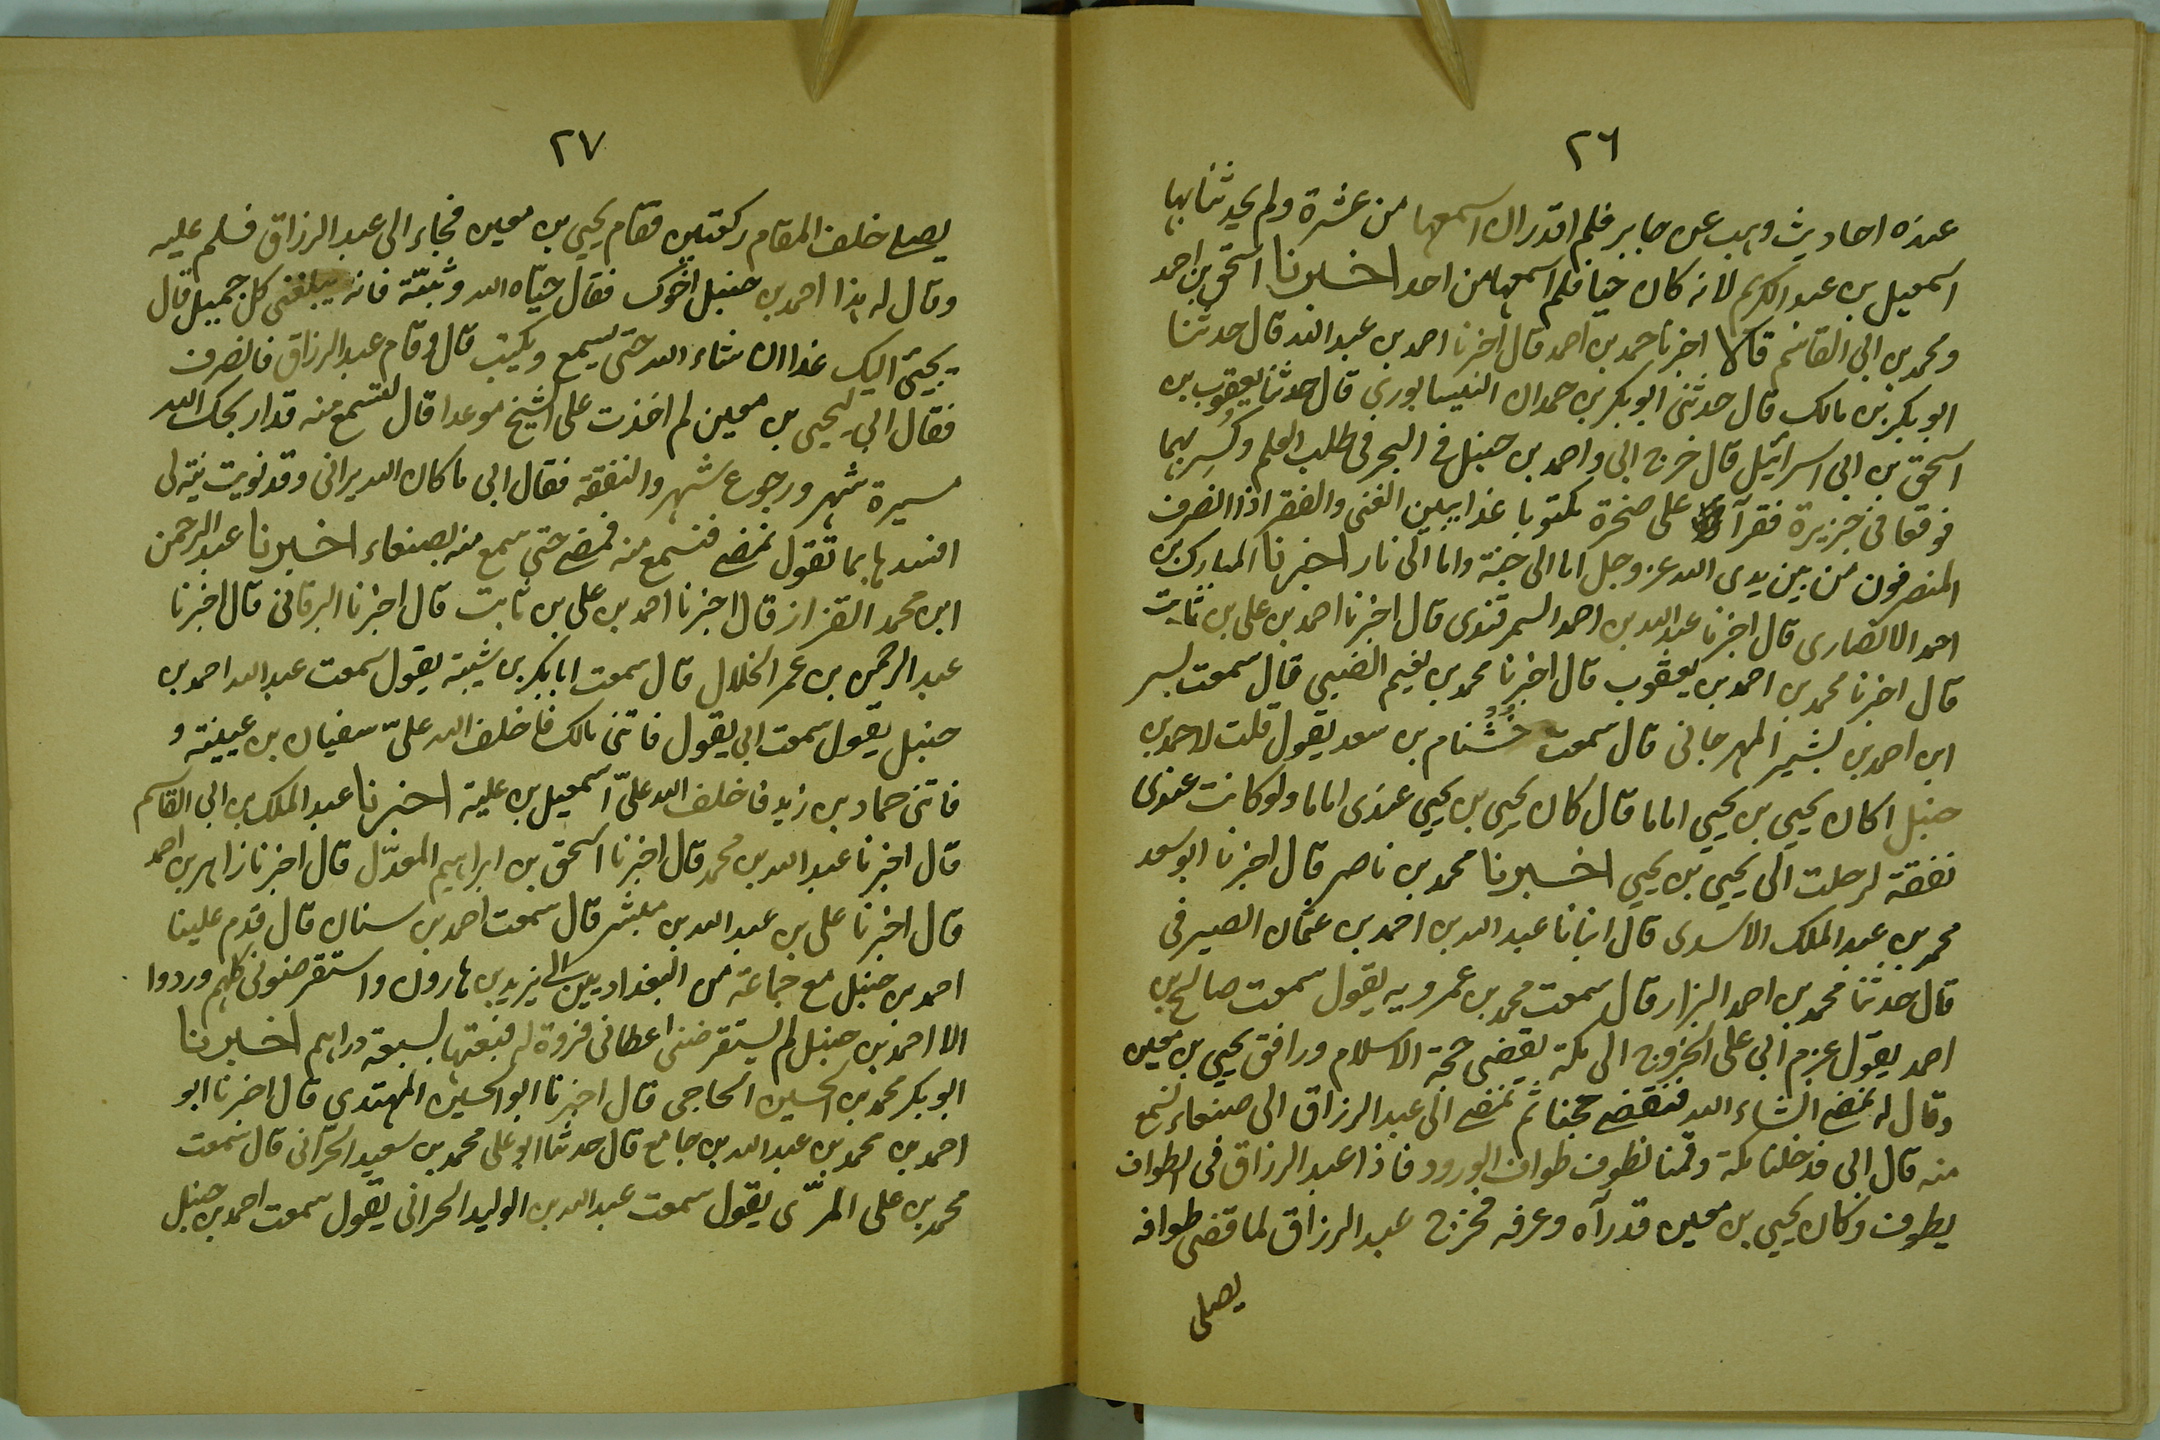 ٢٦
عنده احاديث وهب عن جابر فلم اقدر ان اسمعها من عشرة ولم يحدثنا بها
اسمعيل بن عبد الكريم لانه كان حيا فلم اسمعها من احد اخبرنا اسحق بن احمد
ومحمد بن ابى القاسم قالا اخبرنا حمد بن احمد قال اخبرنا احمد بن عبد الله قال حدثنا
ابو بكر بن مالك قال حدثنى ابو بكر بن حمدان النيسابورى قال حدثنا يعقوب بن
اسحق بن ابى اسرائيل قال خرج ابى واحمد بن حنبل فى البحر فى طلب العلم وكُسِر بهما
فوقعا فى جزيرة فقرآ على صخرة مكتوبا غدا يبين الغنى والفقر اذا انصرف
المنصرفون من بين يدى الله عز وجل اما الى جنة واما الى نار اخبرنا المبارك بن
احمد الانصارى قال اخبرنا عبد الله بن احمد السمرقندى قال اخبرنا احمد بن على بن ثابت
قال اخبرنا محمد بن احمد بن يعقوب قال اخبرنا محمد بن نعيم الضبى قال سمعت بسر
ابن احمد بن بشير المهرجانى قال سمعت خُشْنام بن سعد يقول قلت لاحمد بن
حنبل اكان يحيى بن يحيى اماما قال كان يحيى بن يحيى عندى اماما ولو كانت عندى
نفقة لرحلت الى يحيى بن يحيى اخبرنا محمد بن ناصر قال اخبرنا ابو سعد
محمد بن عبد الملك الاسدى قال انبانا عبد الله بن احمد بن عثمان الصيرفى
قال حدثنا محمد بن احمد البزار قال سمعت محمد بن عمرويه يقول سمعت صالح بن
احمد يقول عزم ابى على الخروج الى مكة يقضى حجة الاسلام ورافق يحيى بن معين
وقال له نمضى انشاء الله فنقضى حجنا ثم نمضى الى عبد الرزاق الى صنعاء نسمع
منه قال ابى فدخلنا مكة وقمنا نطوف طواف الورود فاذا عبد الرزاق فى الطواف
يطوف وكان يحيى بن معين قد رآه وعرفه فخرج عبد الرزاق لما قضى طوافه
يصلى
٢٧
يصلى خلف المقام ركعتين فقام يحيى بن معين فجاء الى عبد الرزاق فسلم عليه
وقال له هذا احمد بن حنبل اخوك فقال حيّاه الله وثبّته فانه يبلغنى كل جميل قال
يجئ اليك غدا ان شاء الله حتى يسمع ويكتب قال وقام عبد الرزاق فانصرف
فقال ابى ليحيى بن معين لم اخذت على الشيخ موعدا قال لنسمع منه قد اربحك الله
مسيرة شهر ورجوع شهر والنفقة فقال ابى ما كان الله يرانى وقد نويت نية لى
افسدها بما تقول نمضى فنسمع منه فمضى حتى سمع منه بصنعاء اخبرنا عبد الرحمن
ابن محمد القزاز قال اخبرنا احمد بن على بن ثابت قال اخبرنا البرقانى قال اخبرنا
عبد الرحمن بن عمر الخلال قال سمعت ابا بكر بن شيبة يقول سمعت عبد الله احمد بن
حنبل يقول سمعت ابى يقول فاتنى مالك فاخلف الله علىّ سفيان بن عيينة و
فاتنى حماد بن زيد فاخلف الله علىّ اسمعيل بن علية اخبرنا عبد الملك بن ابى القاسم
قال اخبرنا عبد الله بن محمد قال اخبرنا اسحق بن ابراهيم المعدّل قال اخبرنا زاهر بن احمد
قال اخبرنا على بن عبد الله بن مبشر قال سمعت احمد بن سنان قال قدم علينا
احمد بن حنبل مع جماعة من البغداديين الى يزيد بن هارون واستقرضونى كلهم وردوا
الا احمد بن حنبل لم يستقرضنى اعطانى فروة له فبعتها بسبعة دراهم اخبرنا
ابو بكر محمد بن الحسين الحاجى قال اخبرنا ابو الحسين المهتدى قال اخبرنا ابو
احمد بن محمد بن عبد الله بن جامع قال حدثنا ابو على محمد بن سعيد الحرّانى قال سمعت
محمد بن على المرّى يقول سمعت عبد الله بن الوليد الحرانى يقول سمعت احمد بن حنبل